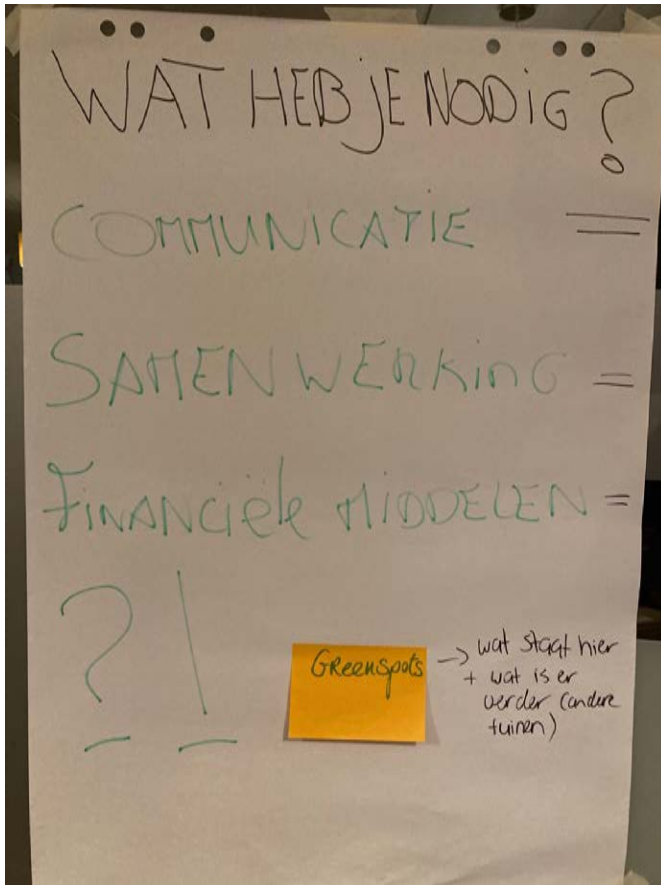 WAT HEB JE NODIG?
COMMUNICATIE =
SAMENWERKING =
FINANCIËLE MIDDELEN =
? !
GREENSPOTS → wat staat hier
+ wat is er
verder (andere
tuinen)